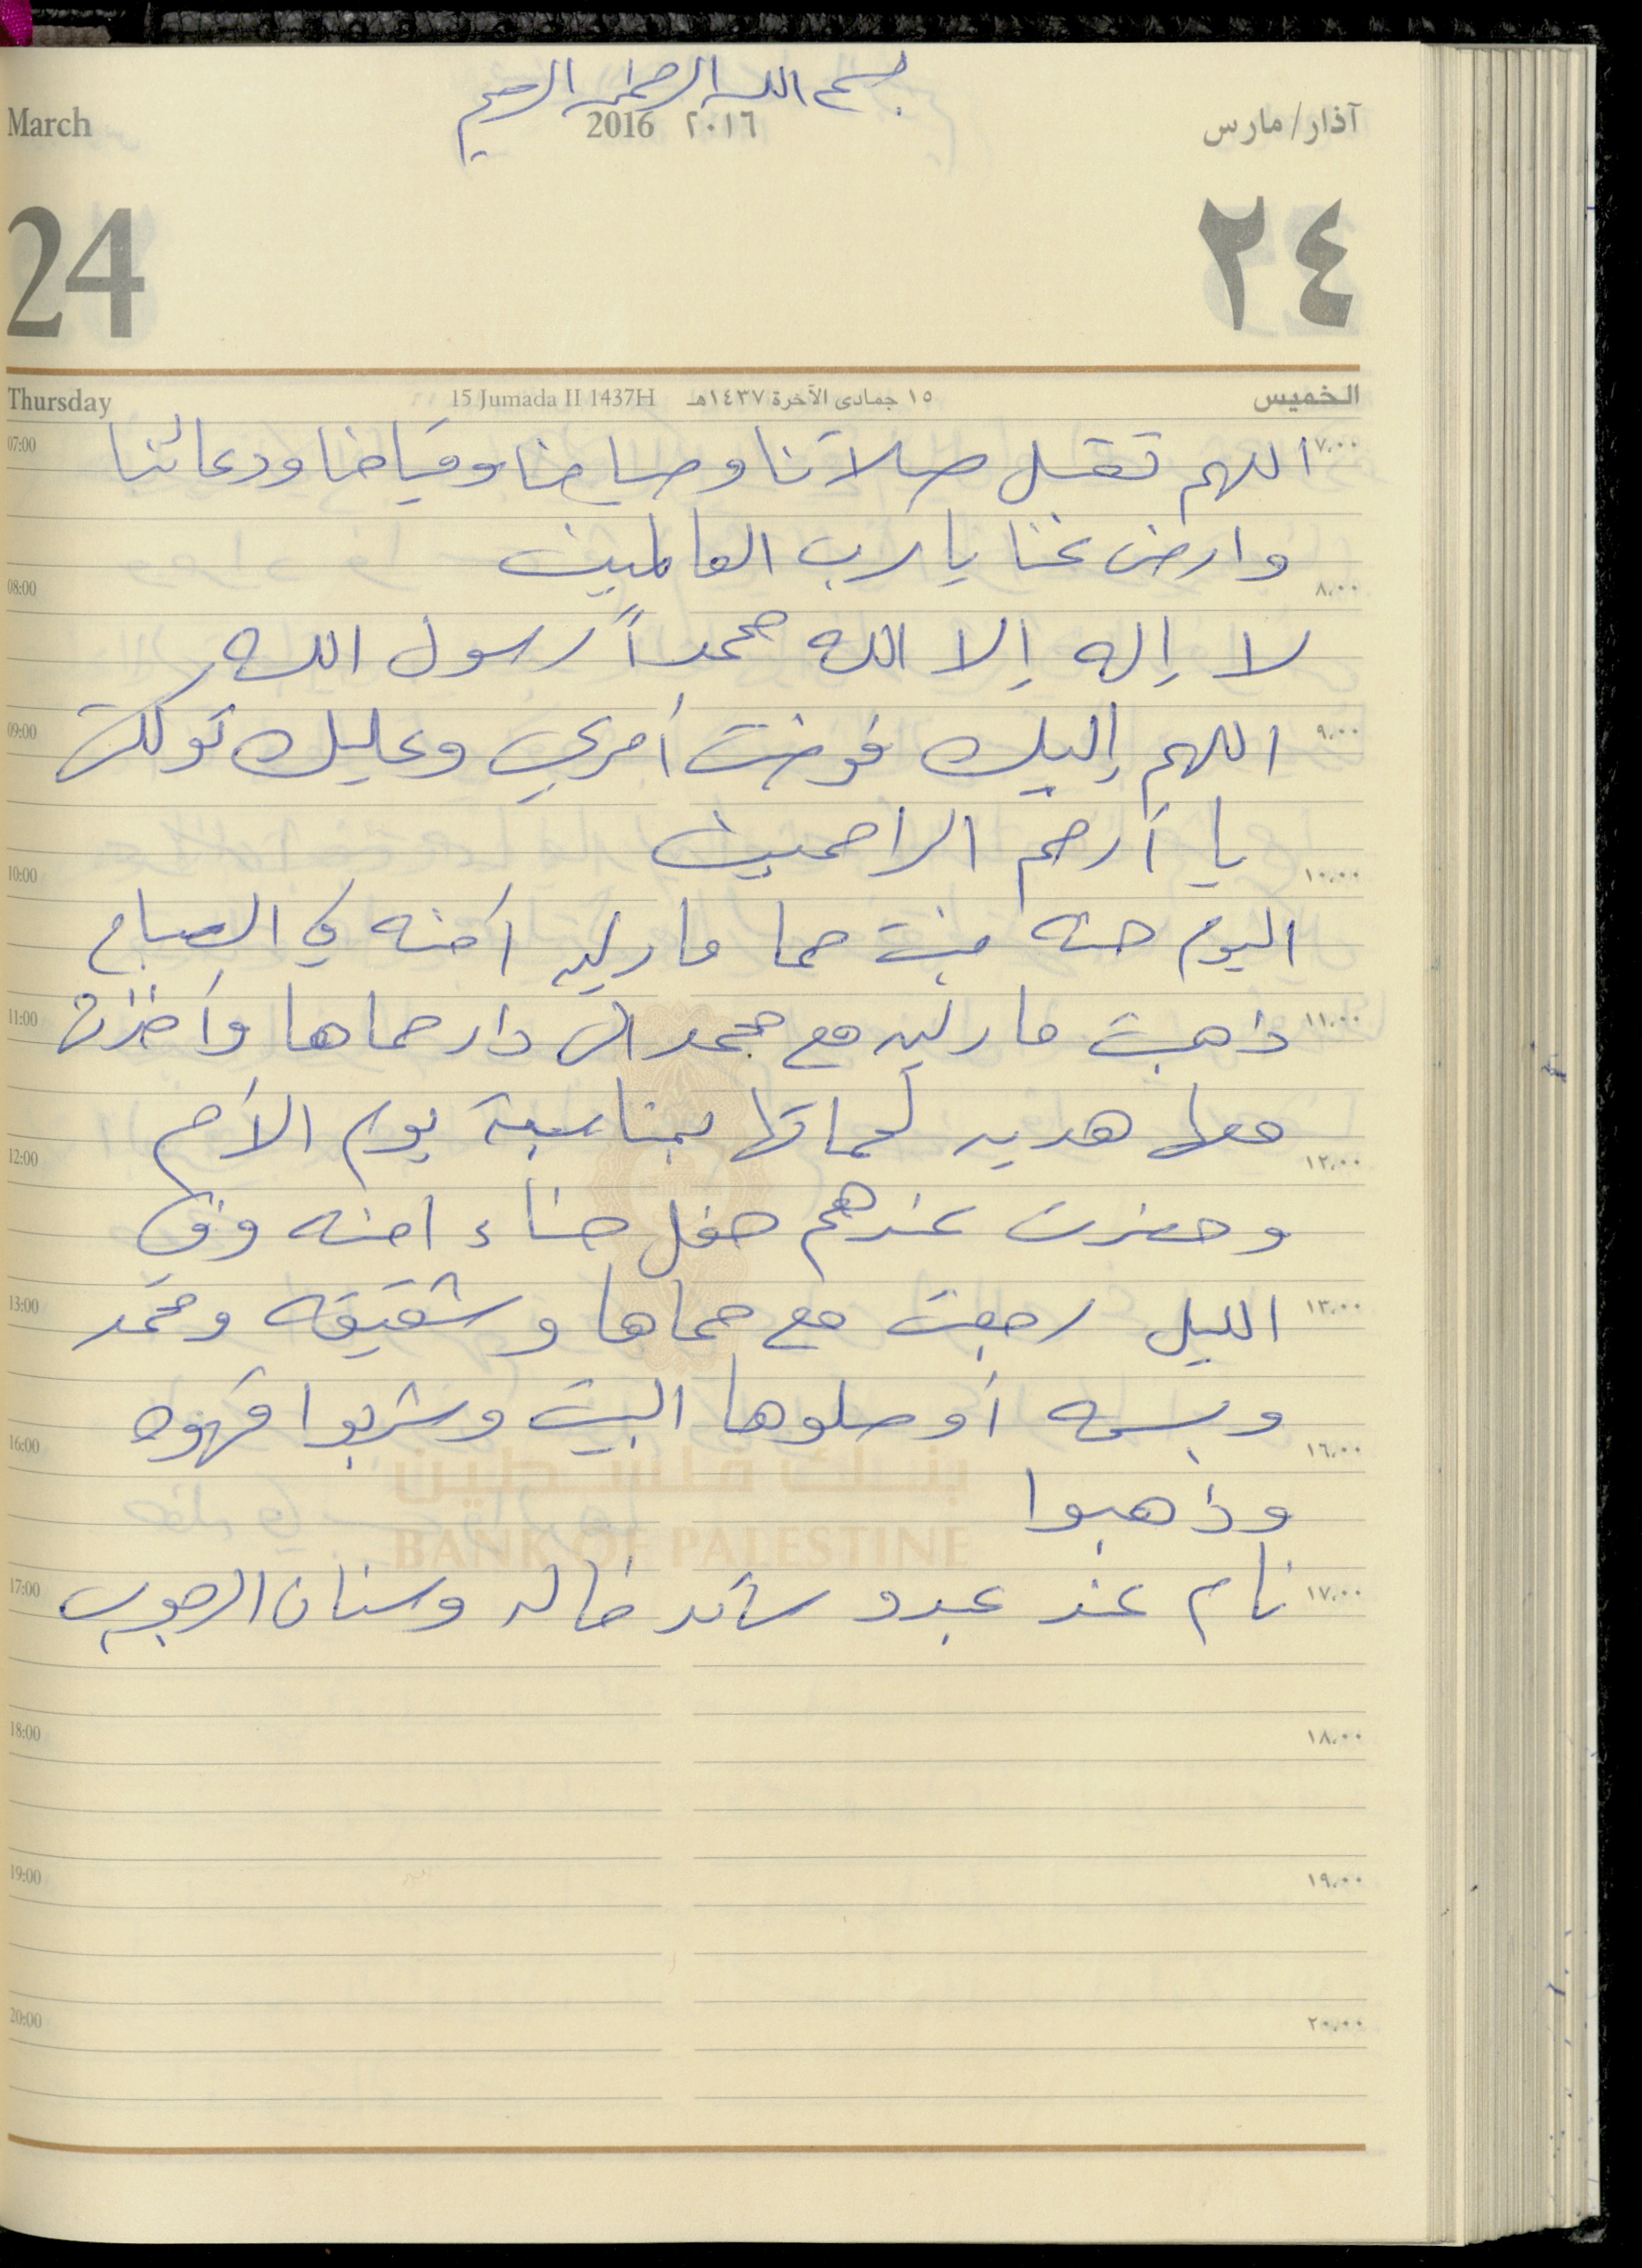 بسم الله الرحمن الرحيم
March 2016 ٢٠١٦ آذار/مارس
24 ٢٤
Thursday 15 Jumada II 1437H ١٥ جمادى الآخرة ١٤٣٧هـ الخميس
07:00 اللهم تقبل صلاتنا وصيامنا وقيامنا ودعائنا ٧,٠٠
وارض عنا يا رب العالمين
08:00 ٨,٠٠
لا إله إلا الله محمداً رسول الله
09:00 اللهم إليك فوضت أمري وعليك توكلت ٩,٠٠
يا أرحم الراحمين
10:00 ١٠,٠٠
اليوم حنه بنت حما مارلين أمنه في الصباح
11:00 ذهبت مارلين مع محمد الى دار حماها وأخذت ١١,٠٠
معها هديه لحماتها بمناسبة يوم الأم
12:00 ١٢,٠٠
وحضرت عندهم حفل حناء امنه وفي
13:00 الليل رجعت مع حماها وشقيقه ومحمد ١٣,٠٠
وبسمه أوصلوها البيت وشربوا قهوه
16:00 ١٦,٠٠
وذهبوا
بنك فلسطين
BANK OF PALESTINE
17:00 نام عند عبدو سائد خالد وسنان الرجوب ١٧,٠٠
18:00 ١٨,٠٠
19:00 ١٩,٠٠
20:00 ٢٠,٠٠